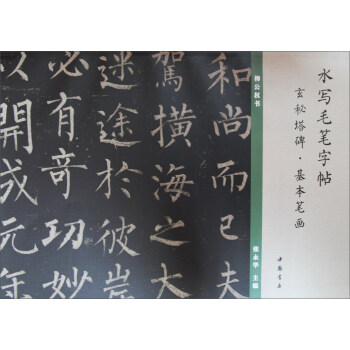 水写毛笔字帖
玄秘塔碑·基本笔画
中国书店
柳公权书
张永华 主编
和尚而已夫
駕橫海之大
迷途於彼岸
必有奇功妙
以開成元年